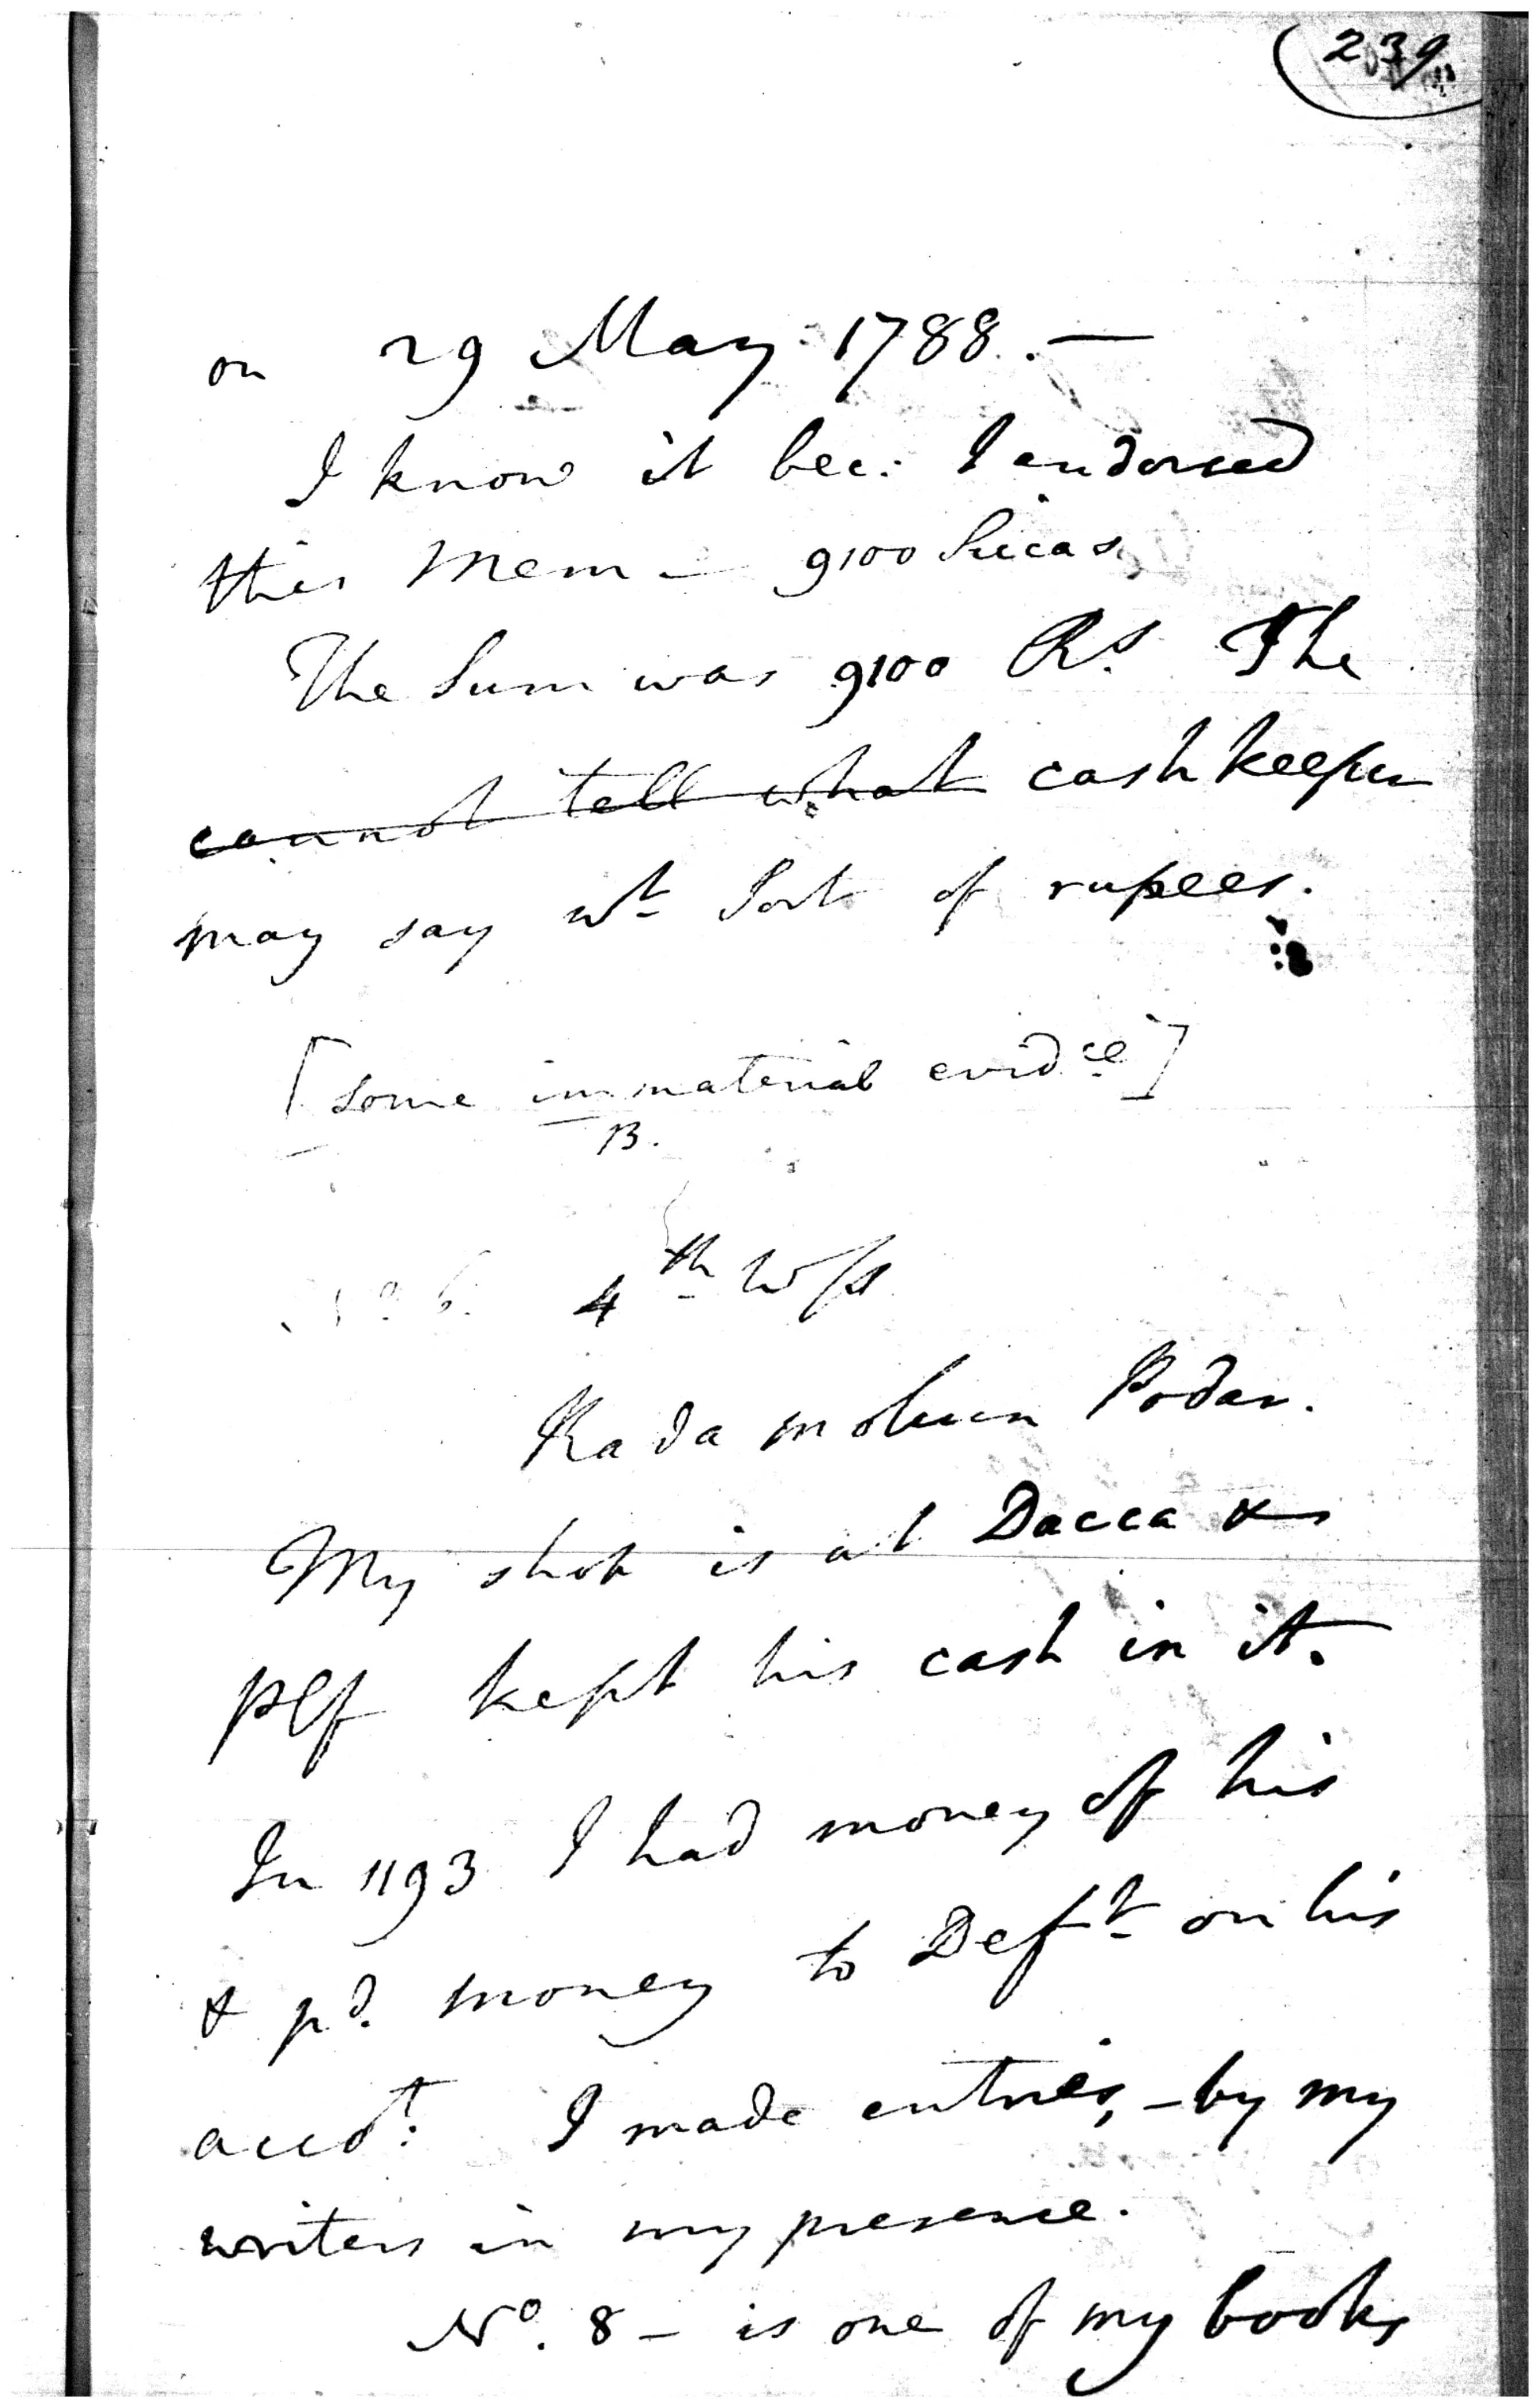 239
on 29 May 1788. —
I know it bec: I endorsed
this Mem — 9100 Siccas
The Sum was 9100 Rs. The
cannot tell what cash keeper
may say wt Sort of rupees.
[some immaterial evidce]
B.
4th W/s
Rada mohun Podar.
My shop is at Dacca &
Plf kept his cash in it.
In 1193 I had money of his
& pd. money to Deft on his
accot: I made entries, – by my
writers in my presence.
No. 8 – is one of my books